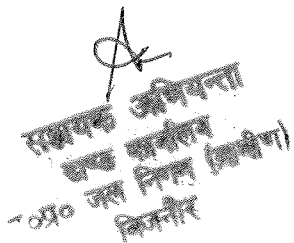 सहायक अभियन्ता
खण्ड कार्यालय
उ०प्र० जल निगम (ग्रामीण)
बिजनौर